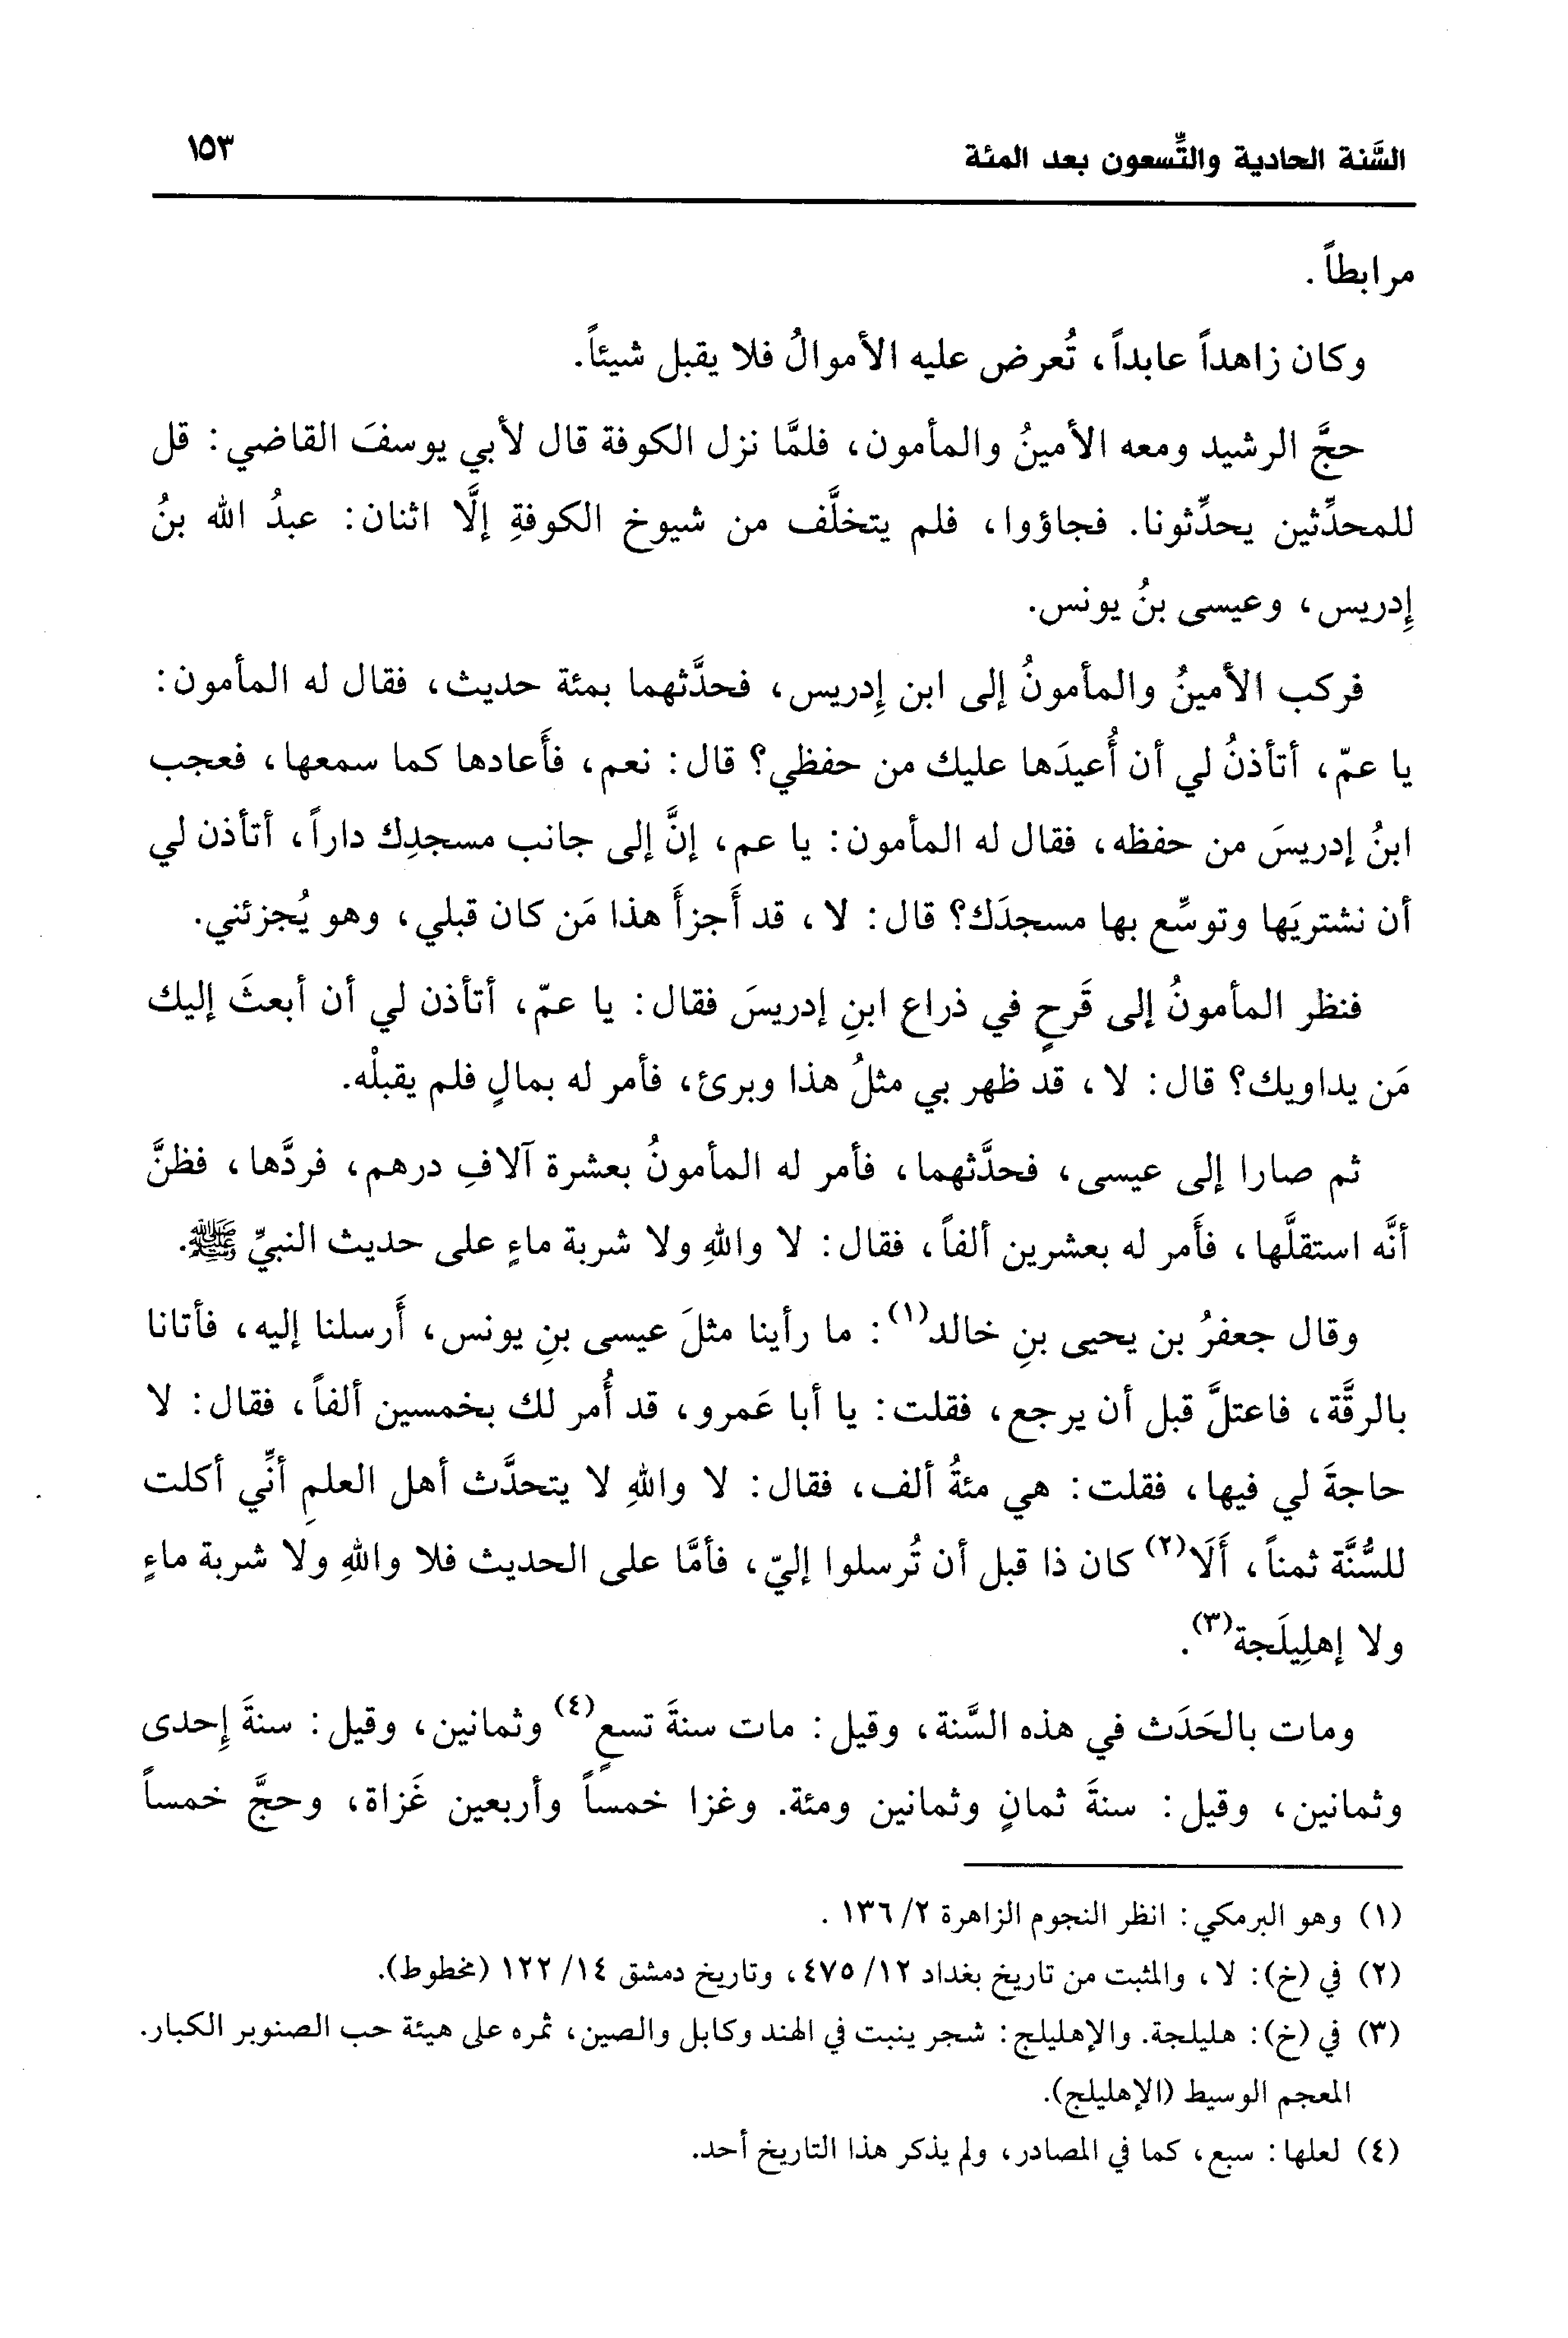 السَّنة الحادية والتِّسعون بعد المئة ١٥٣
مرابطاً.
وكان زاهداً عابداً، تُعرض عليه الأموالُ فلا يقبل شيئاً.
حجَّ الرشيد ومعه الأمينُ والمأمون، فلمَّا نزل الكوفة قال لأبي يوسفَ القاضي: قل
للمحدِّثين يحدِّثونا. فجاؤوا، فلم يتخلَّف من شيوخ الكوفةِ إلَّا اثنان: عبدُ الله بنُ
إدريس، وعيسى بنُ يونس.
فركب الأمينُ والمأمونُ إلى ابن إدريس، فحدَّثهما بمئة حديث، فقال له المأمون:
يا عمّ، أتأذنُ لي أن أُعيدَها عليك من حفظي؟ قال: نعم، فأَعادها كما سمعها، فعجب
ابنُ إدريسَ من حفظه، فقال له المأمون: يا عم، إنَّ إلى جانب مسجدِك داراً، أتأذن لي
أن نشتريَها وتوسِّع بها مسجدَك؟ قال: لا، قد أَجزأَ هذا مَن كان قبلي، وهو يُجزئني.
فنظر المأمونُ إلى قَرحٍ في ذراع ابنِ إدريسَ فقال: يا عمّ، أتأذن لي أن أبعثَ إليك
مَن يداويك؟ قال: لا، قد ظهر بي مثلُ هذا وبرئ، فأمر له بمالٍ فلم يقبلْه.
ثم صارا إلى عيسى، فحدَّثهما، فأمر له المأمونُ بعشرة آلافِ درهم، فردَّها، فظنَّ
أنَّه استقلَّها، فأَمر له بعشرين ألفاً، فقال: لا واللهِ ولا شربة ماءٍ على حديث النبيِّ ﷺ.
وقال جعفرُ بن يحيى بنِ خالد(١): ما رأينا مثلَ عيسى بنِ يونس، أَرسلنا إليه، فأتانا
بالرقَّة، فاعتلَّ قبل أن يرجع، فقلت: يا أبا عَمرو، قد أُمر لك بخمسين ألفاً، فقال: لا
حاجةَ لي فيها، فقلت: هي مئةُ ألف، فقال: لا واللهِ لا يتحدَّث أهل العلمِ أنِّي أكلت
للسُّنَّة ثمناً، أَلَا(٢) كان ذا قبل أن تُرسلوا إليّ، فأمَّا على الحديث فلا واللهِ ولا شربة ماءٍ
ولا إهلِيلَجة(٣).
ومات بالحَدَث في هذه السَّنة، وقيل: مات سنةَ تسعٍ(٤) وثمانين، وقيل: سنةَ إحدى
وثمانين، وقيل: سنةَ ثمانٍ وثمانين ومئة. وغزا خمساً وأربعين غَزاة، وحجَّ خمساً
(١) وهو البرمكي: انظر النجوم الزاهرة ٢/ ١٣٦.
(٢) في (خ): لا، والمثبت من تاريخ بغداد ١٢/ ٤٧٥، وتاريخ دمشق ١٤/ ١٢٢ (مخطوط).
(٣) في (خ): هليلجة. والإهليلج: شجر ينبت في الهند وكابل والصين، ثمره على هيئة حب الصنوبر الكبار.
المعجم الوسيط (الإهليلج).
(٤) لعلها: سبع، كما في المصادر، ولم يذكر هذا التاريخ أحد.